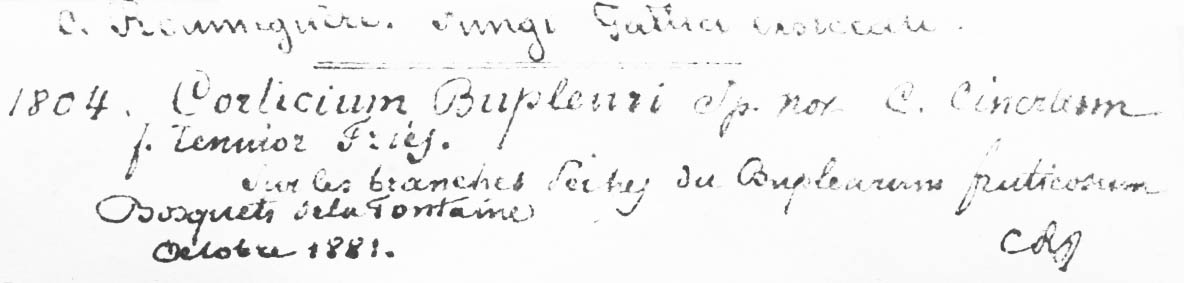 C. Roumeguère. Fungi Gallici exsiccati.
1804. Corticium Bupleuri Sp. nov C. Cinereum
f. tenuior Fries.
Sur les branches sèches du Bupleurum fruticosum
Bosquets de la Fontaine
Octobre 1881.